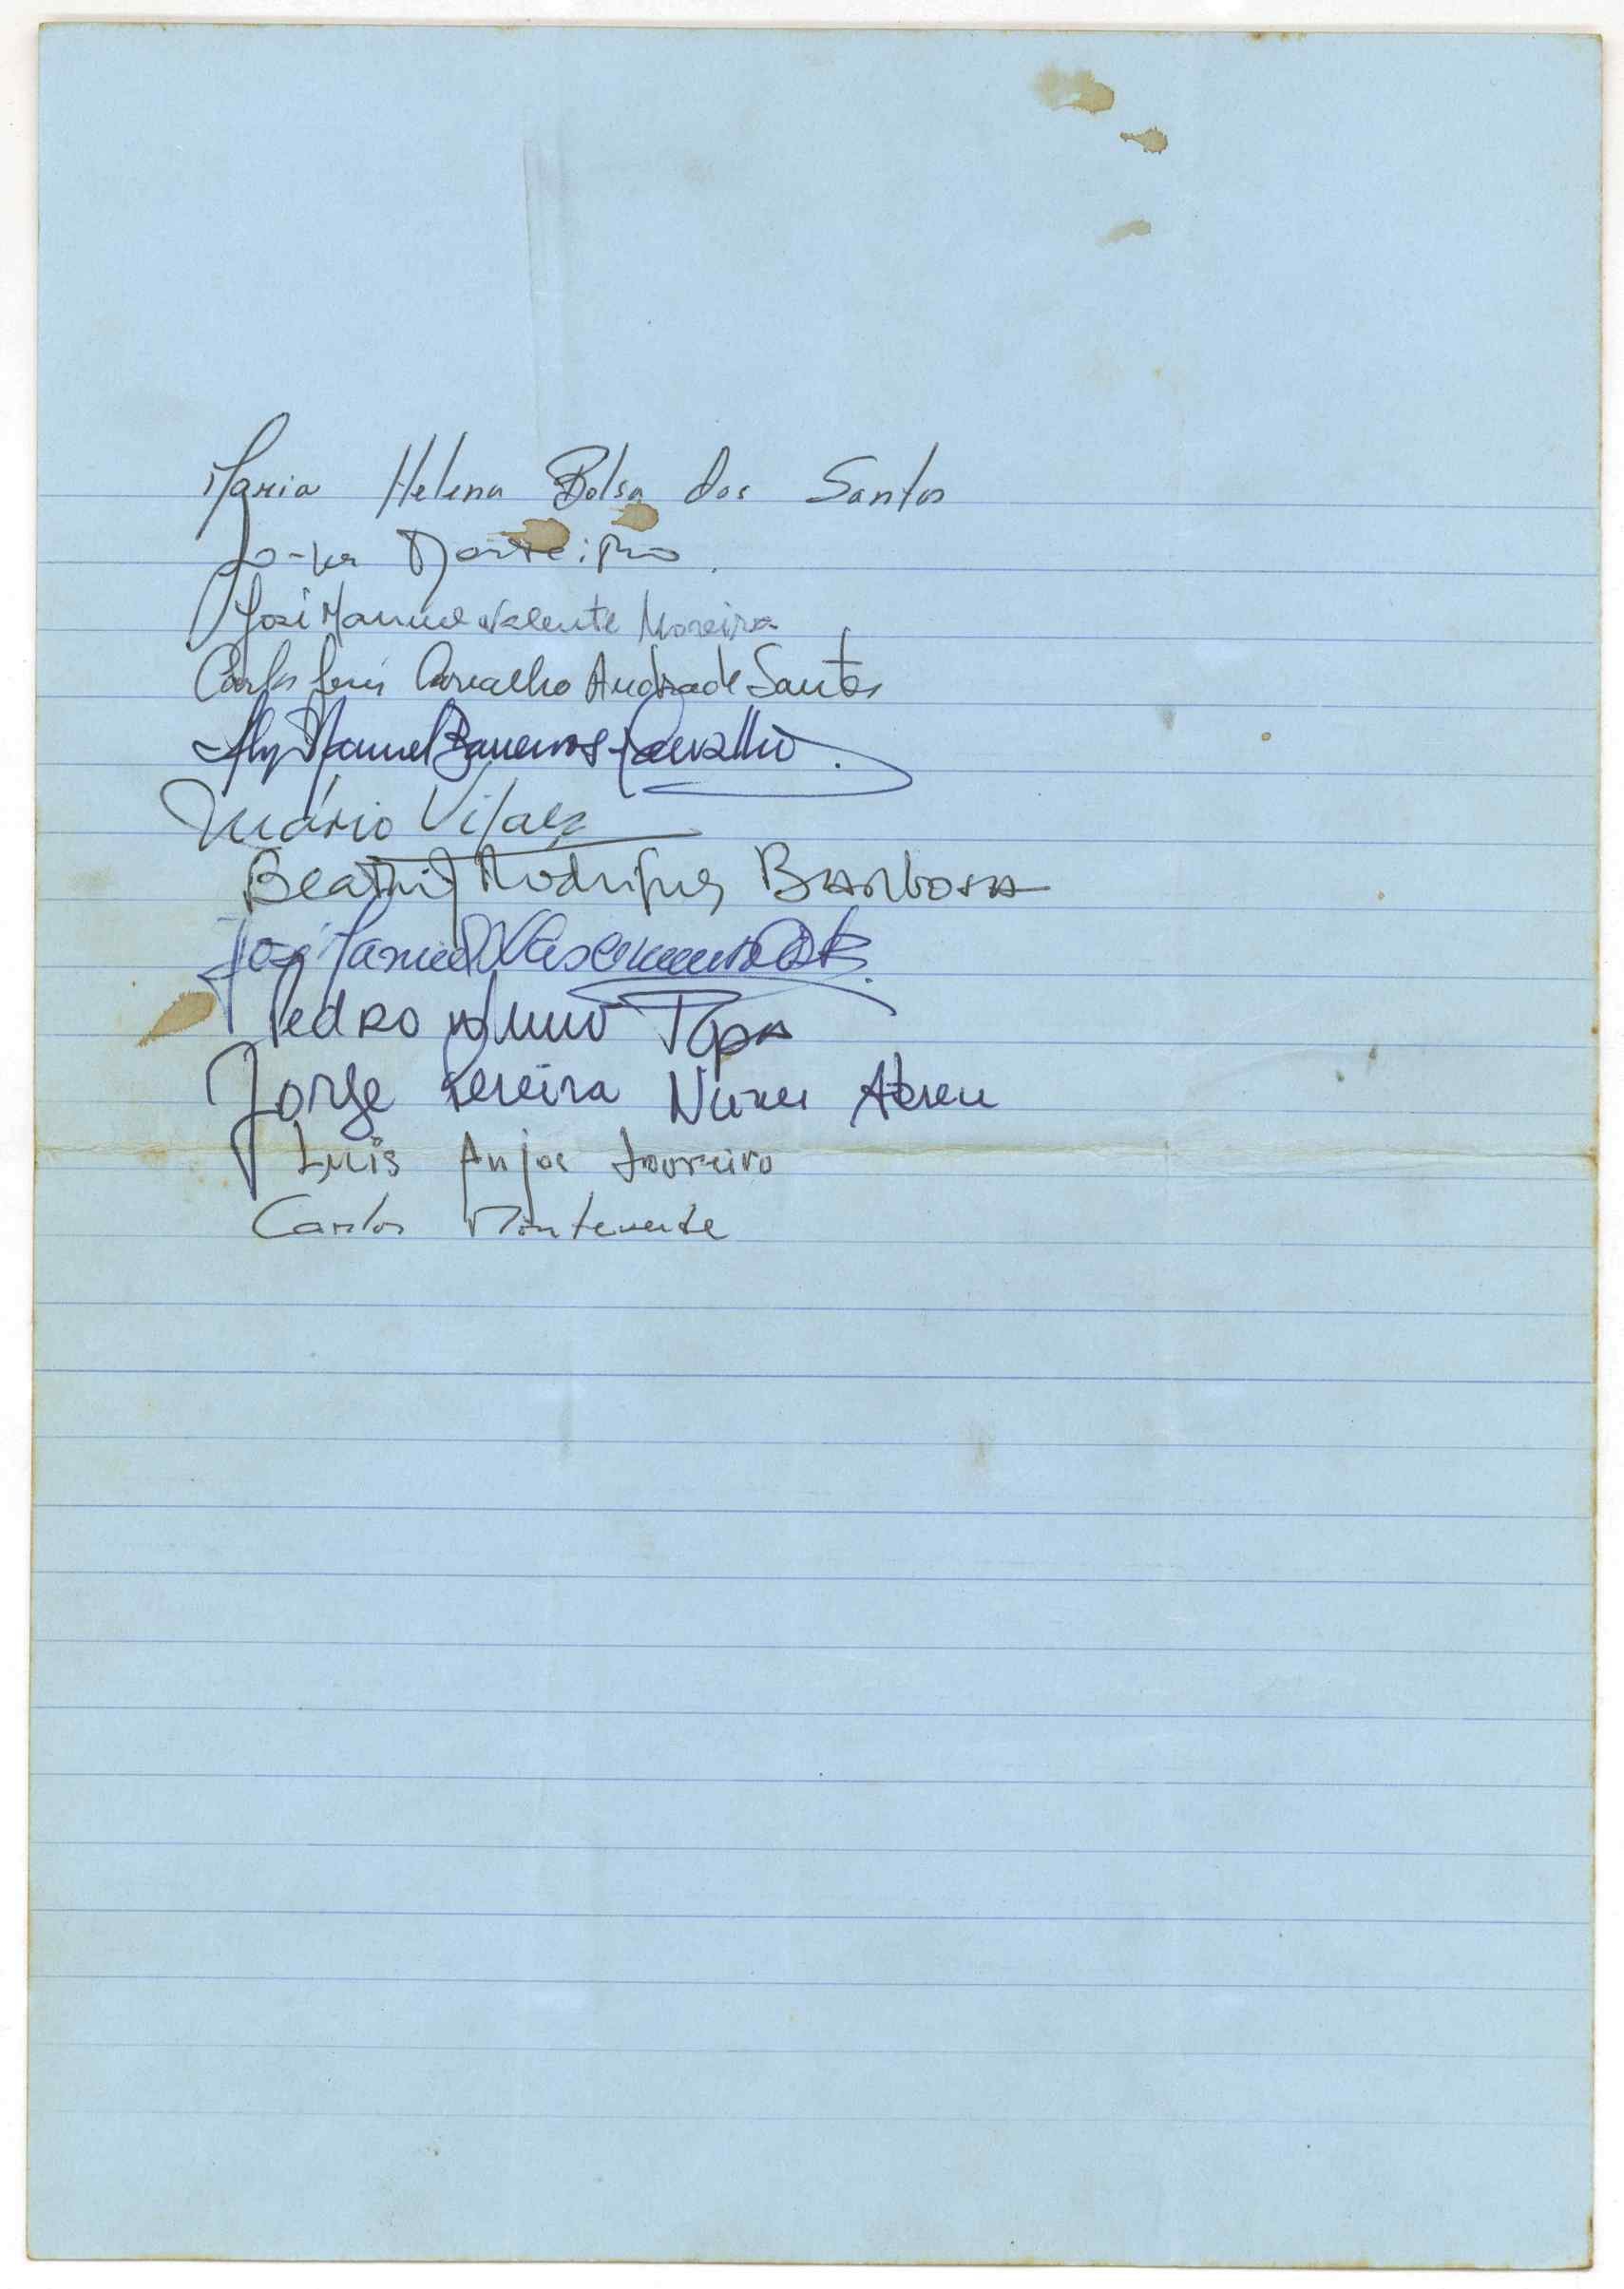 Maria Helena Bolsa dos Santos
Monteiro
José Manuel Valente Moreira
Carlos Luis Carvalho Andrade Santos
Manuel Carvalho
Mário Vilaça
Beatriz Rodrigues Barbosa
José Manuel Nascimento
Pedro Nuno Papa
Jorge Pereira Nunes Abreu
Luis Anjos Loureiro
Carlos Monteverde